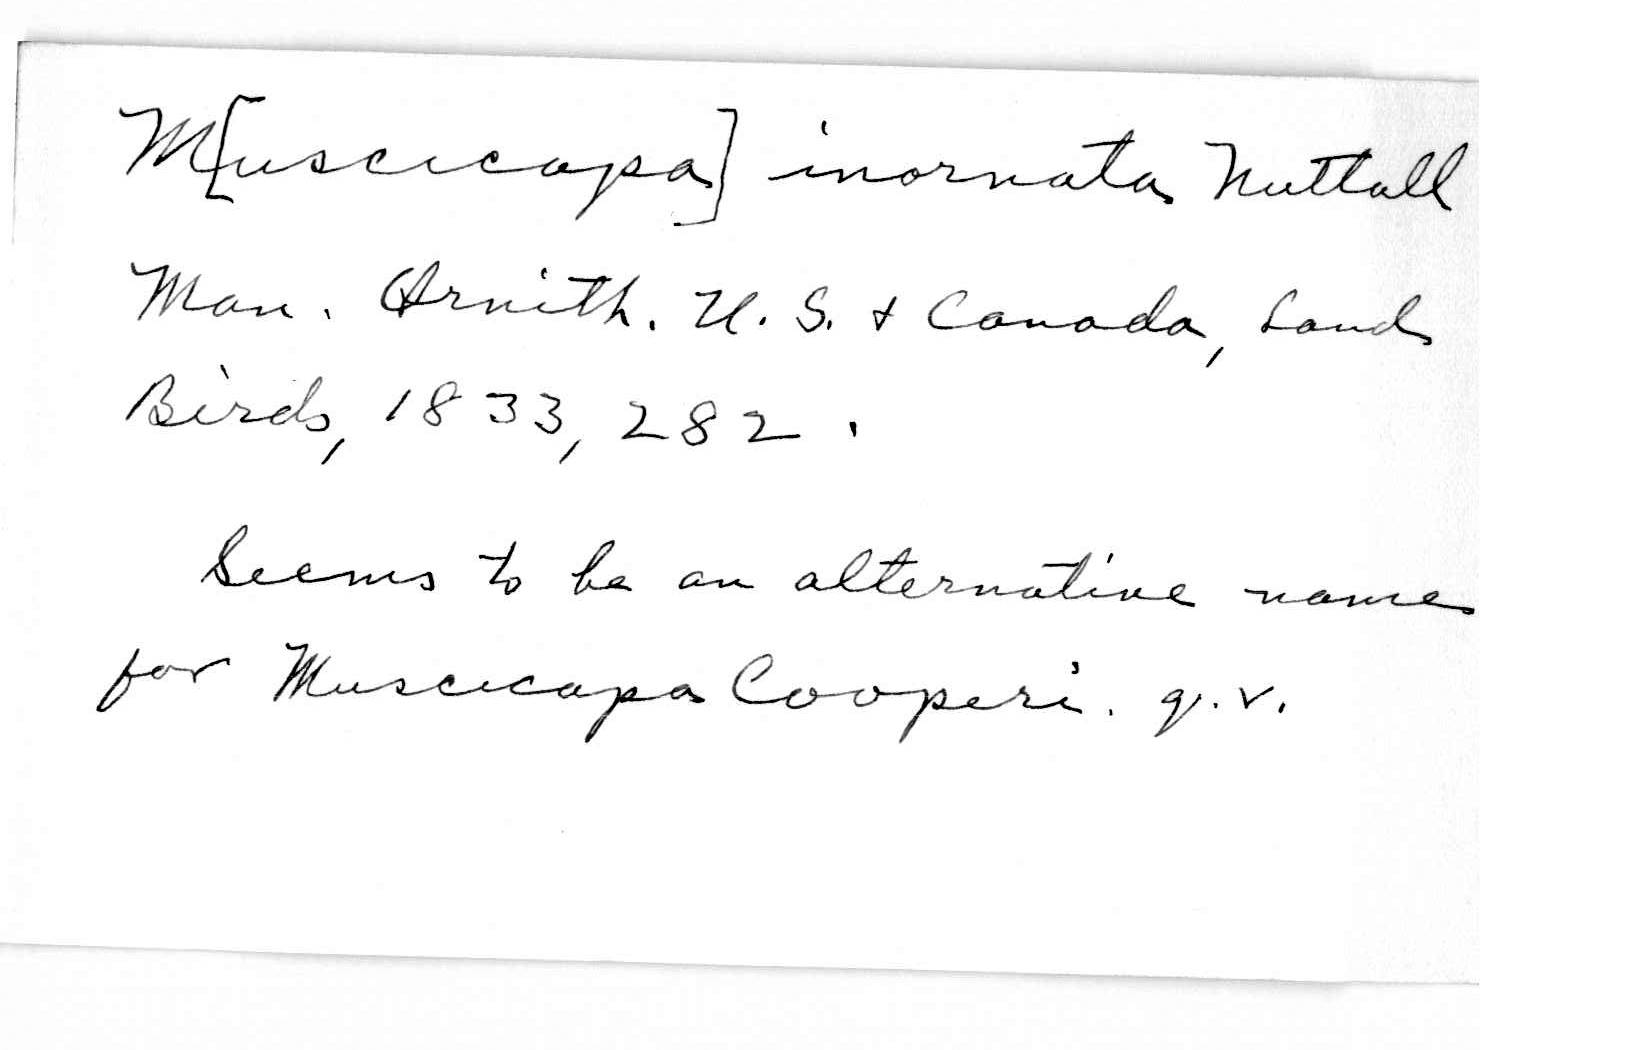 M[uscicapa] inornata Nuttall
Man. Ornith. U. S. + Canada, Land
Birds, 1833, 282.
Seems to be an alternative name
for Muscicapa Cooperi. q.v.